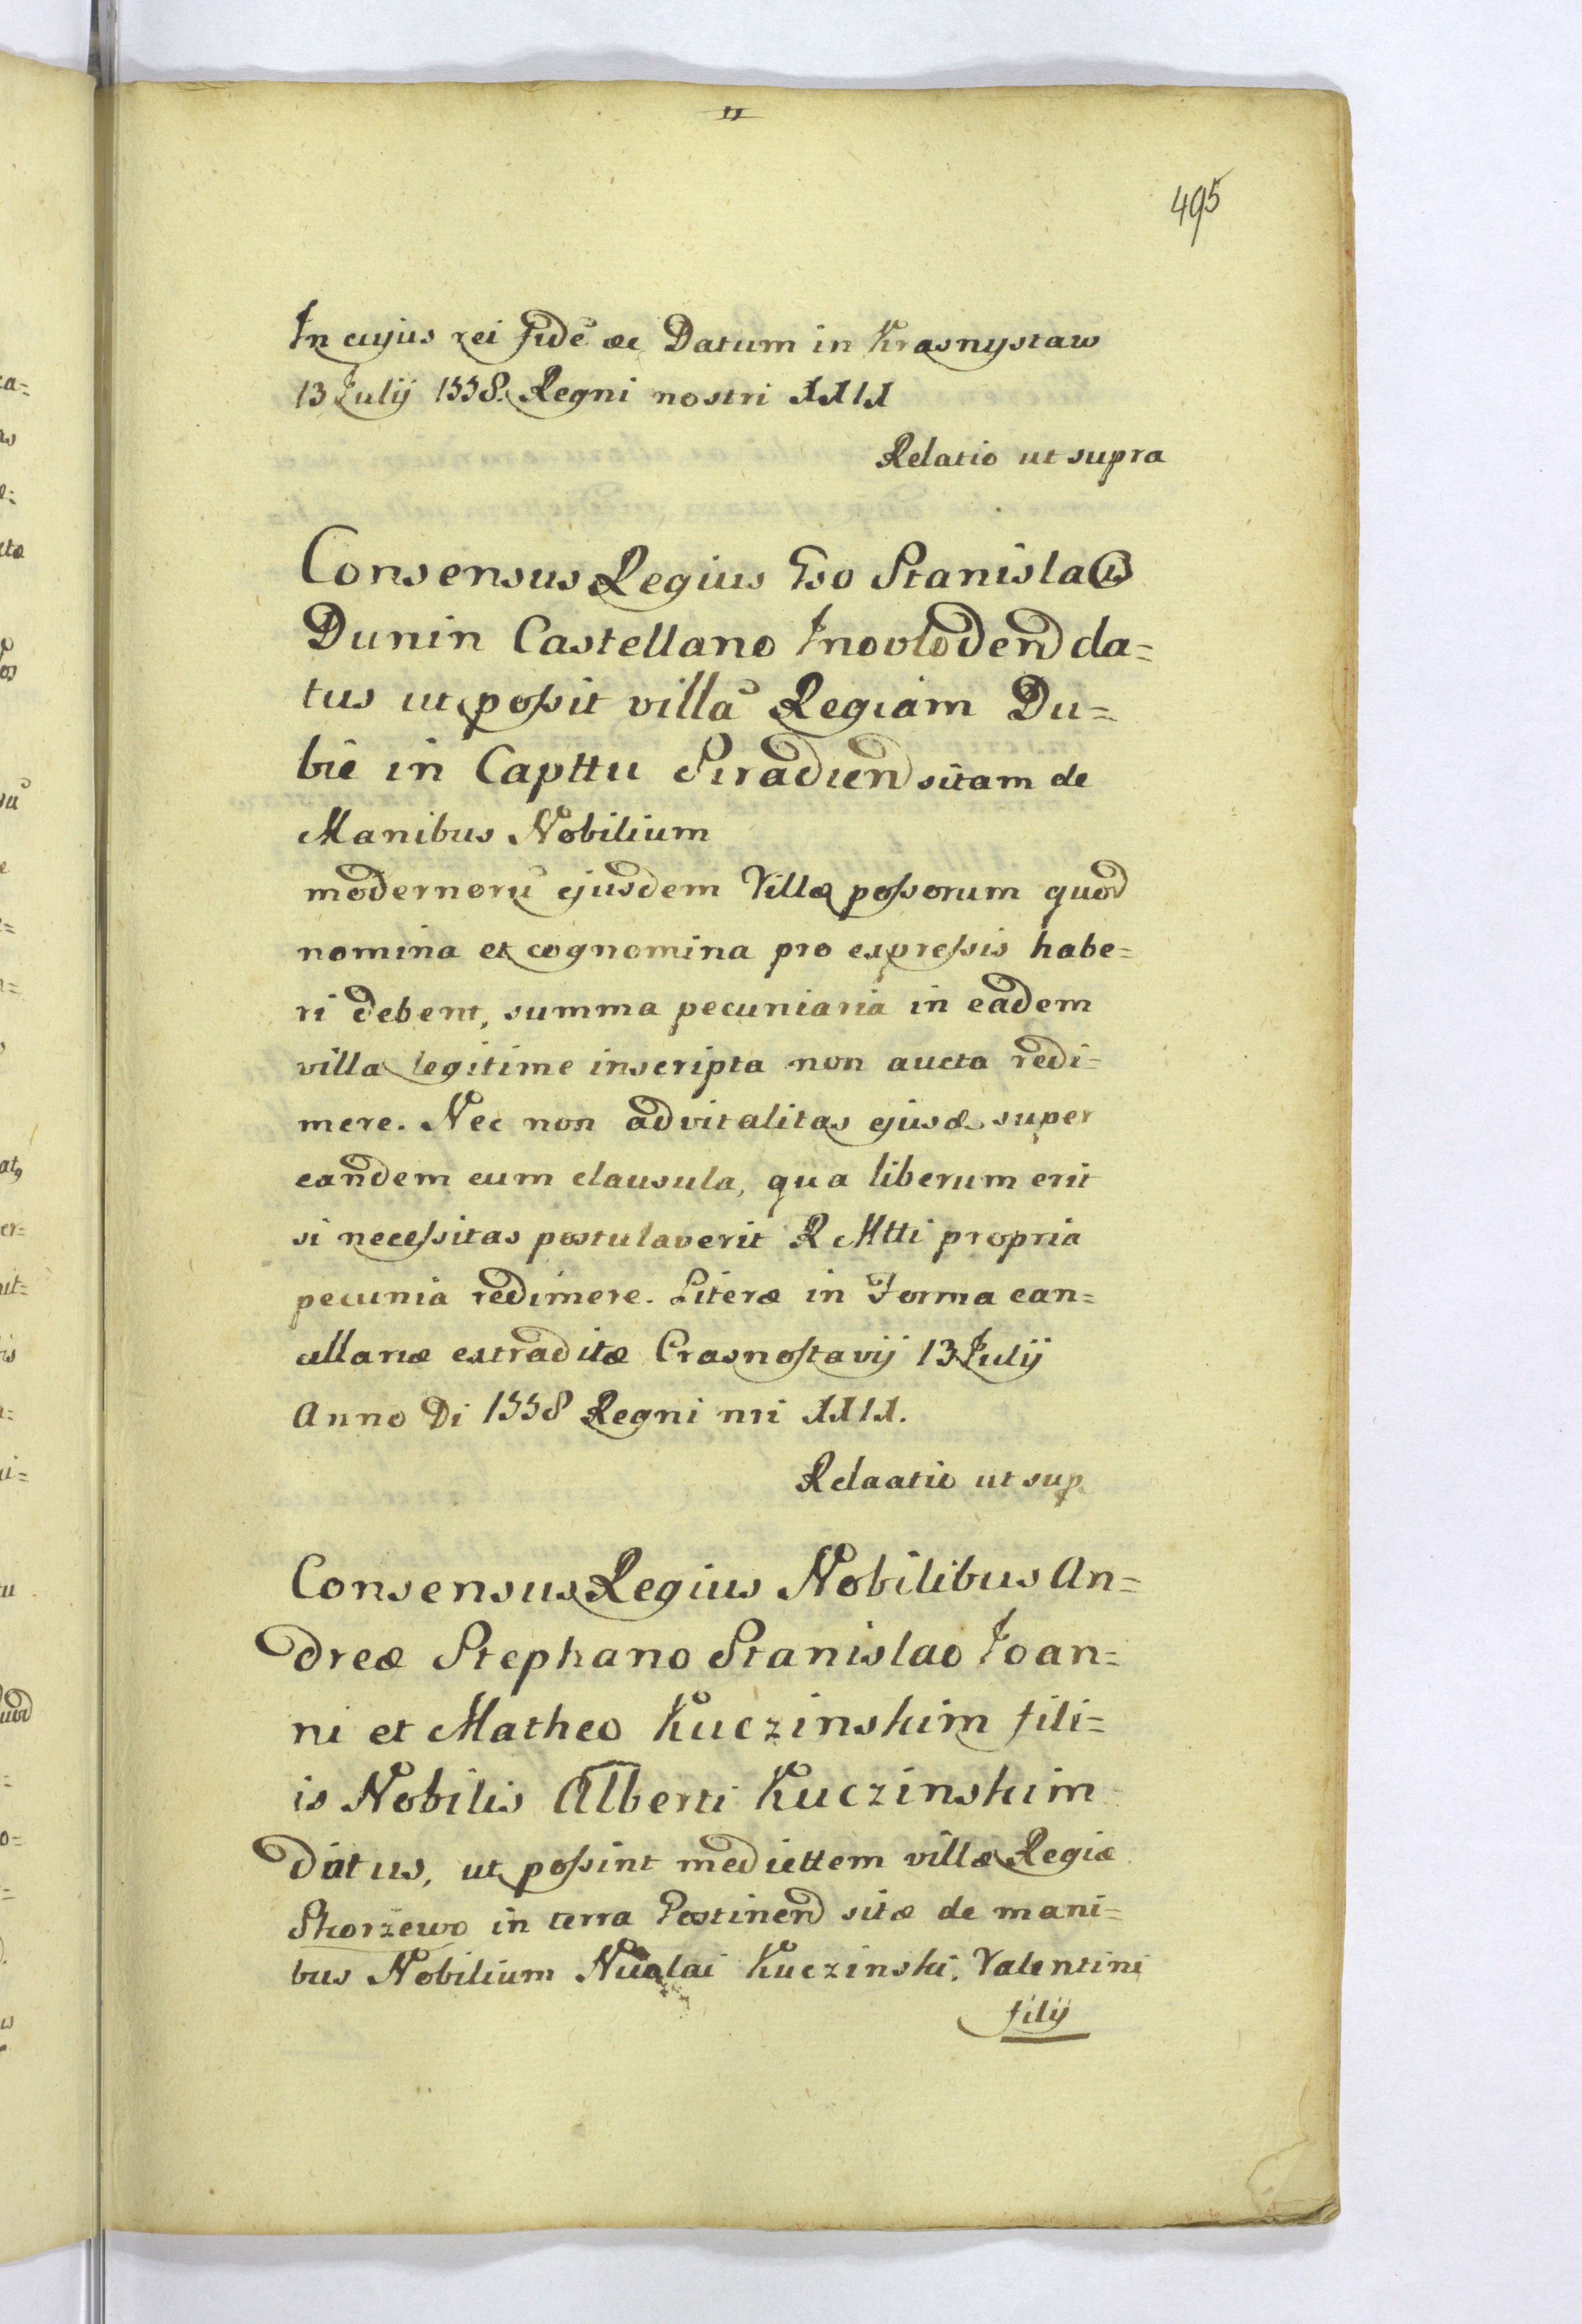 495
In cujus rei fidē &c Datum in Krasnystaw
13 Julij 1558. Regni nostri XXIX
Relatio ut supra
Consensus Regius Gso Stanislao
Dunin Castellano Inovlodend da=
tus ut possit villā Regiam Du=
bie in Capttu Siradiend sitam de
Manibus Nobilium
modernorū ejusdem Villæ possorum quod
nomina et cognomina pro expressis habe=
ri debent, summa pecuniaria in eadem
villa legitime inscripta non aucta redi=
mere. Nec non advitalitas ejusd super
eandem cum clausula, qua liberum erit
si necessitas postulaverit R Mtti propria
pecunia redimere. Literæ in Forma can=
cllariæ extraditæ Crasnostavij 13 Julij
Anno Di 1558 Regni nri XXIX.
Relaatio ut sup
Consensus Regius Nobilibus An=
dreæ Stephano Stanislao Joan=
ni et Matheo Kuczinskim fili=
is Nobilis Alberti Kuczinskim
datus, ut possint mediettem villæ Regiæ
Skorzewo in terra Gostinend sitæ de mani=
bus Nobilium Nicolai Kuczinski, Valentini
filij